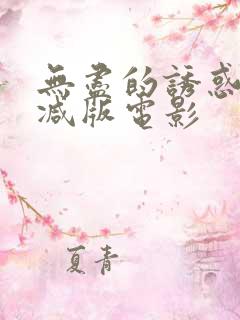 無盡的誘惑
減版電影
夏青